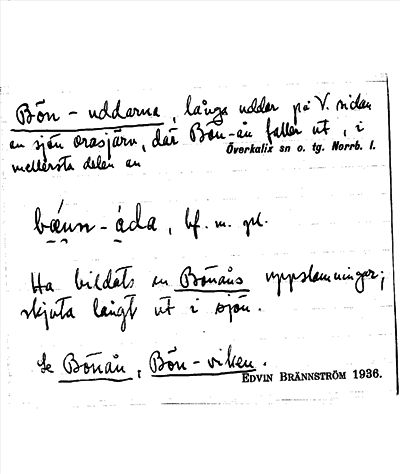 Bön-uddarna, långa uddar på V. sidan
av sjön Orasjärv, där Bön-ån faller ut, i
Överkalix sn o. tg. Norrb. l.
mellersta delen av
bæ̣nn-ạ́da, bf. m. pl.
Ha bildats av Bönåns uppslamningar;
skjuta långt ut i sjön.
Se Bönån, Bön-viken.
EDVIN BRÄNNSTRÖM 1936.